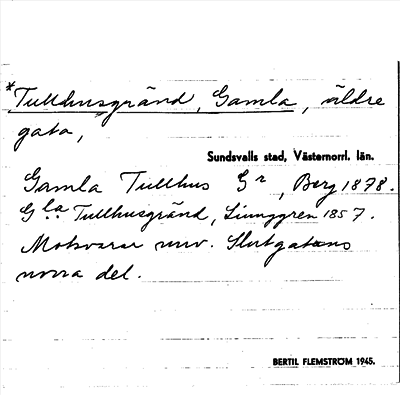 *Tullhusgränd, Gamla, äldre
gata,
Sundsvalls stad, Västernorrl. län.
Gamla Tullhus Gr, Berg 1878.
Gla. Tullhusgränd, Ljunggren 1857.
Motsvarar nuv. Slutgatans
norra del.
BERTIL FLEMSTRÖM 1945.